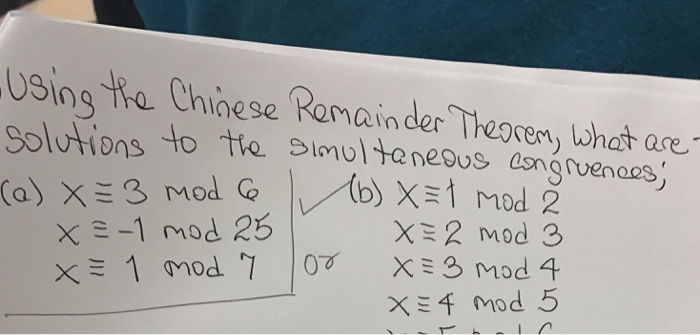 Using the Chinese Remainder Theorem, what are
solutions to the simultaneous congruences;
(a) x ≡ 3 mod 6
x ≡ -1 mod 25
x ≡ 1 mod 7
or
(b) x ≡ 1 mod 2
x ≡ 2 mod 3
x ≡ 3 mod 4
x ≡ 4 mod 5